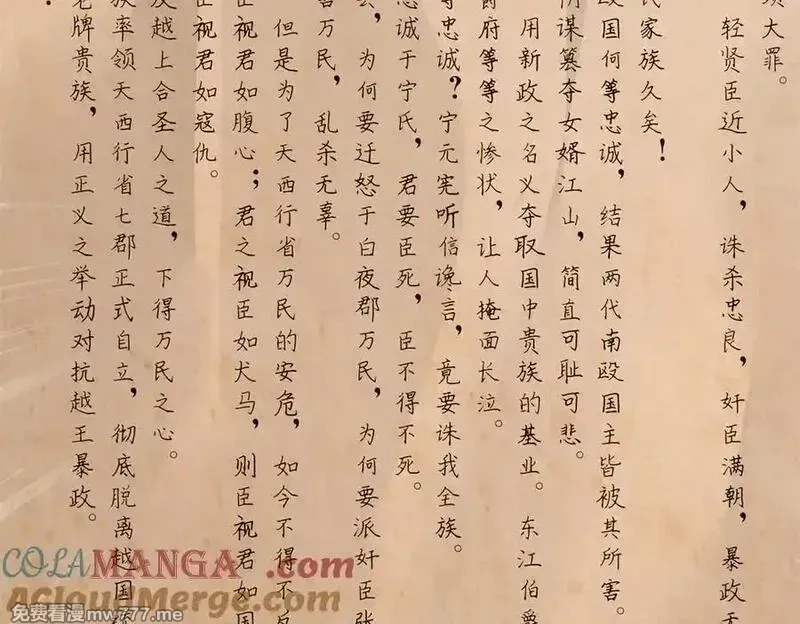 项大罪。
轻贤臣近小人，诛杀忠良，奸臣满朝，暴政
氏家族久矣！
瓯国何等忠诚，结果两代南瓯国主皆被其所害。
阴谋篡夺女婿江山，简直可耻可悲。
用新政之名义夺取国中贵族的基业。东江伯爵
爵府等等之惨状，让人掩面长泣。
等忠诚？宁元宪听信谗言，竟要诛我全族。
忠诚于宁氏，君要臣死，臣不得不死。
为何要迁怒于白夜郡万民，为何要派奸臣张
害万民，乱杀无辜。
但是为了天西行省万民的安危，如今不得不反
臣视君如腹心；君之视臣如犬马，则臣视君如国
臣视君如寇仇。
反越上合圣人之道，下得万民之心。
族率领天西行省七郡正式自立，彻底脱离越国
老牌贵族，用正义之举动对抗越王暴政。
COLAMANGA.com
ACloudMerge.com
免费看漫mw777.me